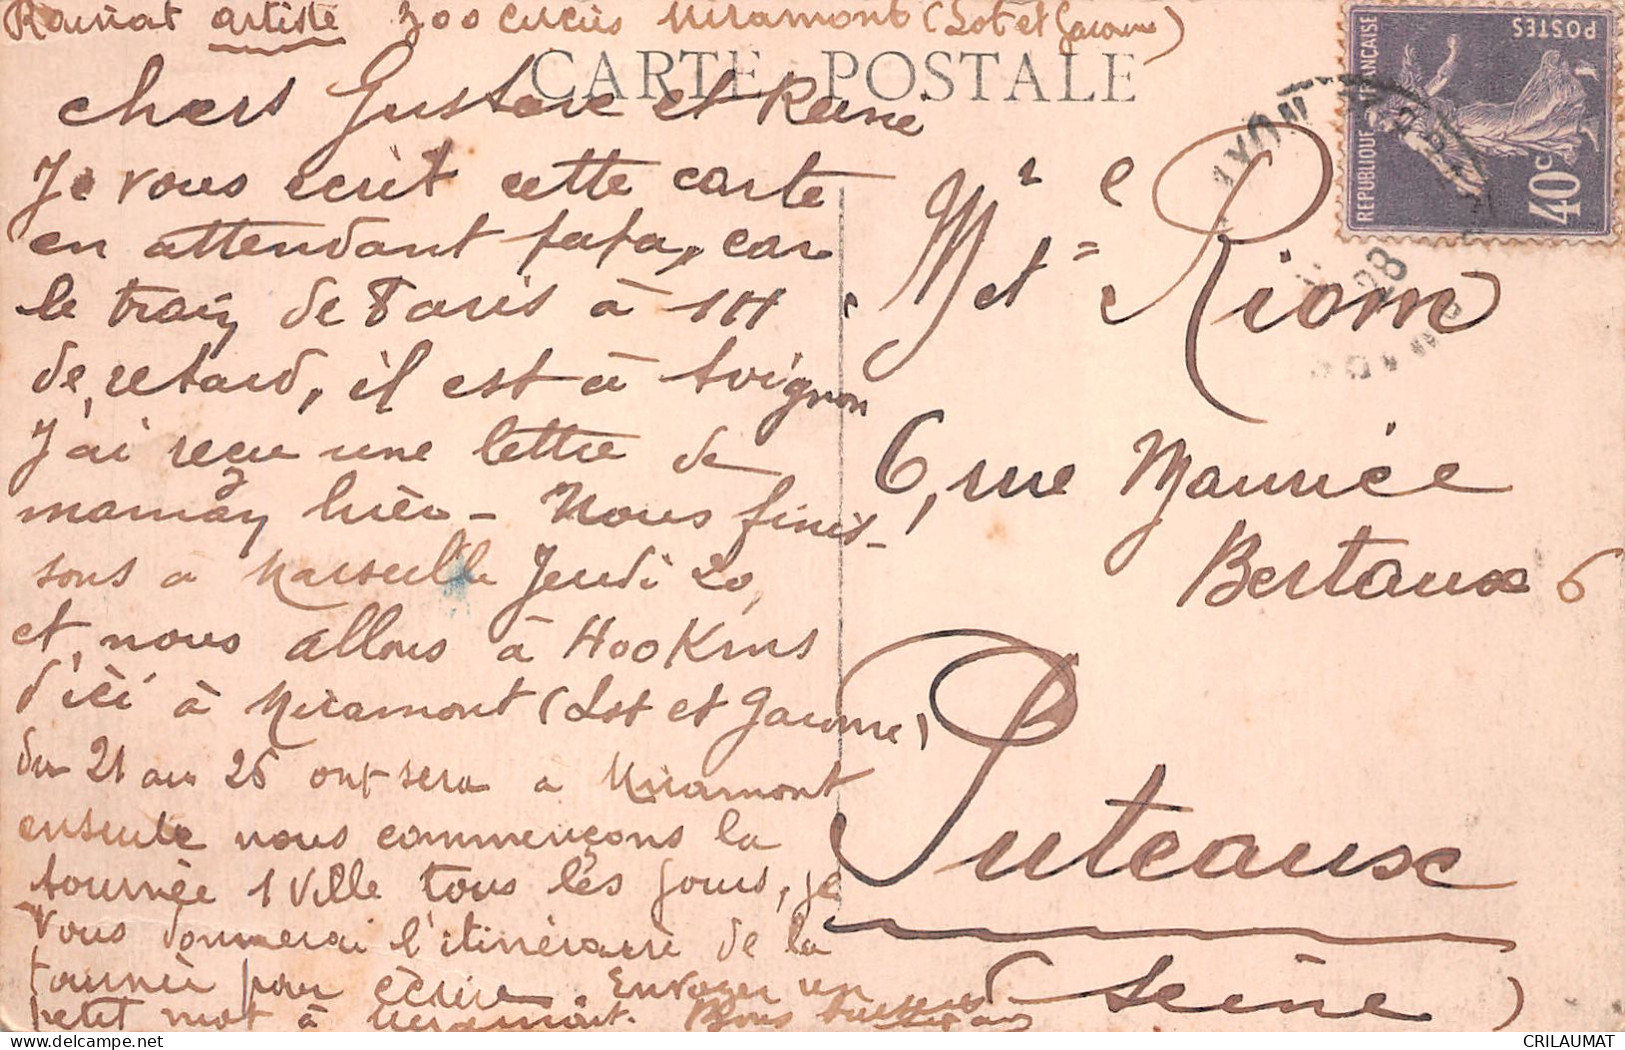 artiste Zoo Circus Miramont (Lot et Garonne)
CARTE POSTALE
Chers Gustave et Reine
Je vous écrit cette carte
en attendant papa, car
le train de Paris à 1H
de retard, il est à Avignon
J'ai reçu une lettre de
maman hièr - Nous finis-
sons a Marseille Jeudi 20,
et nous allons à 400 Kms
d'ici à Miramont (Lot et Garonne)
du 21 au 25 ont sera a Miramont
ensuite nous commençons la
tournée 1 Ville tous les jours, je
vous donnerai l'itinéraire de la
tournée pour écrire. Envoyer un
petit mot à Miramont. Bons
Mr et Me Riom
6, rue Maurice
Bertaux 6
Puteaux
(Seine)
REPUBLIQUE FRANÇAISE
POSTES
40c
28
CRILAUMAT